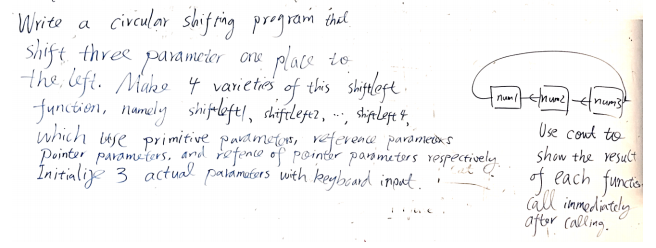 Write a circular shifting program that
shift three parameter one place to
the left. Make 4 varieties of this shiftleft
function, namely shiftleft1, shiftleft2, ..., shiftleft4,
which use primitive parameters, reference parameters
pointer parameters, and refence of pointer parameters respectively
Initialize 3 actual parameters with keyboard input.
num1 num2 num3
Use cout to
show the result
of each functio
call immediately
after calling.